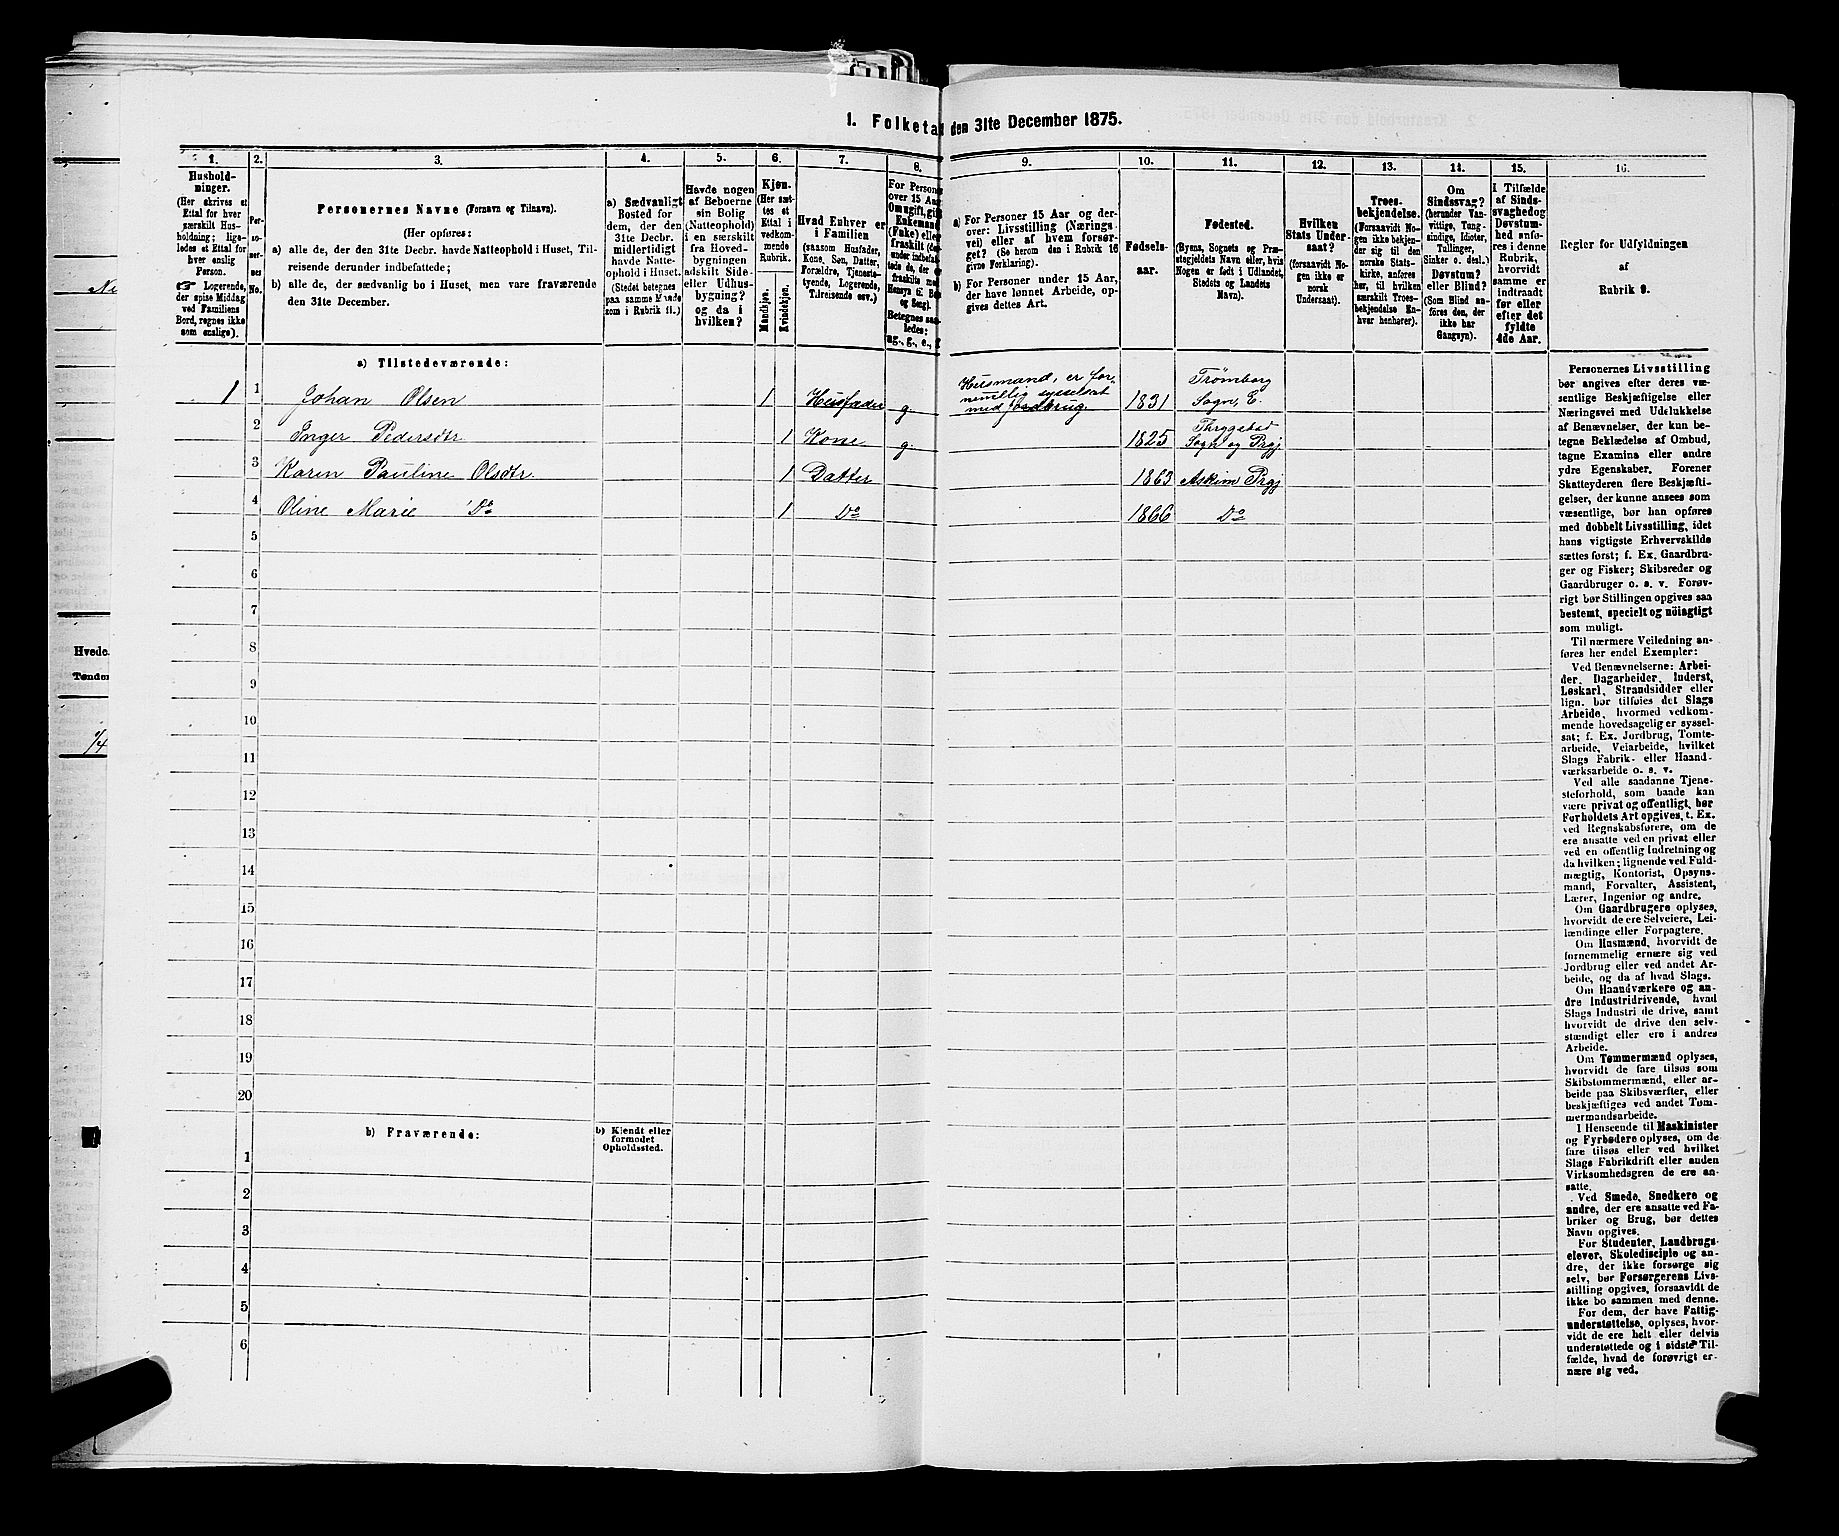 1. Folketæ den 31te December 1875.
1. 2. 3. 4. 5. 6. 7. 8. 9. 10. 11. 12. 13. 14. 15. 16.
Hushold-
ninger.
(Her skrives et
Ettal for hver
særskilt Hus-
holdning; lige-
ledes et Ettal for
hver enslig
Person.
☞ Logerende,
der spise Middag
ved Familiens
Bord, regnes ikke
som enslige).
Per-
so-
ner-
nes
No.
Personernes Navne (Fornavn og Tilnavn).
(Her opføres:
a) alle de, der den 31te Decbr. havde Natteophold i Huset, Til-
reisende derunder indbefattede;
b) alle de, der sædvanlig bo i Huset, men vare fraværende
den 31te December.
a) Sædvanligt
Bosted for
dem, der den
31te Decbr.
midlertidigt
havde Natte-
ophold i Huset.
(Stedet betegnes
paa samme Maade
som i Rubrik 11.)
Havde nogen
af Beboerne
sin Bolig
(Natteophold)
i en særskilt
fra Hoved-
bygningen
adskilt Side-
eller Udhus-
bygning?
og da i
hvilken?
Kjøn.
(Her sæt-
tes et
Ettal i
vedkom-
mende
Rubrik.
Mandkjøn.
Kvindekjøn.
Hvad Enhver er
i Familien
(saasom Husfader,
Kone, Søn, Datter,
Forældre, Tjeneste-
tyende, Logerende,
Tilreisende osv.)
For Persone
over 15 Aar
Om ugift, gift
Enkemand
(Fnke) eller
fraskilt (der-
under indbefat-
tede de, der er
fraskilte med
Hensyn til Bo
og Seng).
Betegnes saa-
ledes:
ug., g., e., f
a) For Personer 15 Aar og der-
over: Livsstilling (Nærings-
vei) eller af hvem forsør-
get? (Se herom den i Rubrik 16
givne Forklaring).
b) For Personer under 15 Aar,
der have lønnet Arbeide, op-
gives dettes Art.
Fødsels-
aar.
Fødested.
(Byens, Sognets og Præ-
stegjeldets Navn eller, hvis
Nogen er født i Udlandet,
Stedets og Landets
Navn).
Hvilken
Stats Under-
saat?
(forsaavidt No-
gen ikke er
norsk
Undersaat).
Troes-
bekjendelse.
(Forsaavidt No-
gen ikke bekjen-
der sig til den
norske Stats-
kirke, anføres
her, til hvilken
særskilt Troes-
bekjendelse En-
hver henhører).
Om
Sindssvag?
(herunder Van-
vittige, Tung-
sindige, Idioter,
Tullinger,
Sinker o. desl.)
Døvstum?
eller Blind?
(Som Blind an-
føres den, der
ikke har
Gangsyn).
I Tilfælde
af Sinds-
svaghed og
Døvstum-
hed anfø-
res i denne
Rubrik,
hvorvidt
samme er
indtraadt
før eller
efter det
fyldte
4de Aar.
Regler for Udfyldningen
af
Rubrik 9.
a) Tilstedeværende:
1 1 Johan Olsen 1 Husfader g. Husmand, er for-
nemlig sysselsat
med Jordbrug. 1831 Trømborg
Sogn, E.
2 Inger Pedersdtr. 1 Kone g. 1825 Thrygstad
Sogn og Prgj.
3 Karen Pauline Olsdtr. 1 Datter 1863 Askim Prgj
4 Oline Marie Do 1 Do 1866 Do
5
6
7
8
9
10
11
12
13
14
15
16
17
18
19
20
b) Fraværende:
b) Kjendt eller
formodet
Opholdssted.
1
2
3
4
5
6
Personernes Livsstilling
bør angives efter deres væ-
sentlige Beskjæftigelse eller
Næringsvei med Udelukkelse
af Benævnelser, der kun be-
tegne Beklædelse af Ombud,
tagne Examina eller andre
ydre Egenskaber. Forener
Skatteyderen flere Beskjæfti-
gelser, der kunne ansees som
væsentlige, bør han opføres
med dobbelt Livsstilling, idet
hans vigtigste Erhvervskilde
sættes først; f. Ex. Gaardbru-
ger og Fisker; Skibsreder og
Gaardbruger o. s. v. Forøv-
rigt bør Stillingen opgives saa
bestemt, specielt og nöiagtigt
som muligt.
Til nærmere Veiledning an-
føres her endel Exempler:
Ved Benævnelserne: Arbei-
der, Dagarbeider, Inderst,
Løskarl, Strandsidder eller
lign. bør tilføies det Slags
Arbeide, hvormed vedkom-
mende hovedsagelig er syssel-
sat; f. Ex. Jordbrug, Tomte-
arbeide, Veiarbeide, hvilket
Slags Fabrik- eller Haand-
værksarbeide o. s. v.
Ved alle saadanne Tjene-
steforhold, som baade kan
være privat og offentligt, bør
Forholdets Art opgives, t. Ex.
ved Regnskabsførere, om de
ere ansatte ved en privat eller
ved en offentlig Indretning og
da hvilken; lignende ved Fuld-
mægtig, Kontorist, Opsyns-
mand, Forvalter, Assistent,
Lærer, Ingeniør og andre.
Om Gaardbrugere oplyses,
hvorvidt de ere Selveiere, Lei-
lændinge eller Forpagtere.
Om Husmænd, hvorvidt de
fornemmelig ernære sig ved
Jordbrug eller ved andet Ar-
beide, og da af hvad Slags.
Om Haandværkere og an-
dre Industridrivende, hvad
Slags Industri de drive, samt
hvorvidt de drive den selv-
stændigt eller ere i andres
Arbeide.
Om Tømmermænd oplyses,
hvorvidt de fare tilsøs som
Skibstømmermænd, eller ar-
beide paa Skibsværfter, eller
beskjæftiges ved andet Tøm-
mermandsarbeide.
I Henseende til Maskinister
og Fyrbødere oplyses, om de
fare tilsøs eller ved hvilket
Slags Fabrikdrift eller anden
Virksomhedsgren de ere an-
satte.
Ved Smede, Snedkere og
andre, der ere ansatte ved Fa-
briker og Brug, bør dettes
Navn opgives.
For Studenter, Landbrugs-
elever, Skoledisciple og an-
dre, der ikke forsørge sig
selv, bør Forsørgerens Livs-
stilling opgives, forsaavidt de
ikke bo sammen med denne.
For dem, der have Fattig-
understøttelse, oplyses, hvor-
vidt de ere helt eller delvis
understøttede og i sidste Til-
fælde, hvad de forøvrigt er-
nære sig ved.
Hvede.
Tønder
1/4